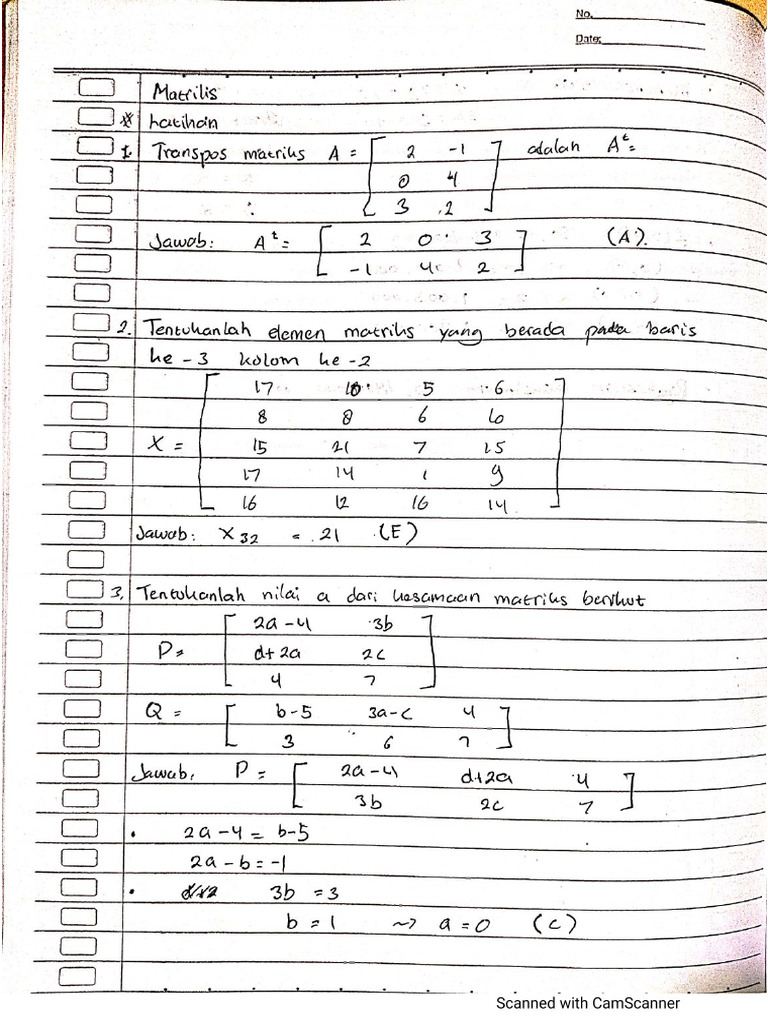 No.
Date:
Matriks
* Latihan
1. Transpos matriks A = [ 2 -1 ] adalah Aᵗ=
[ 0 4 ]
[ 3 2 ]
Jawab: Aᵗ = [ 2 0 3 ] (A).
[ -1 4 2 ]
2. Tentukanlah elemen matriks yang berada pada baris
ke -3 kolom ke -2
[ 17 10 5 6 ]
[ 8 8 6 6 ]
X = [ 15 21 7 15 ]
[ 17 14 1 9 ]
[ 16 12 16 14 ]
Jawab: X₃₂ = 21 (E)
3. Tentukanlah nilai a dari kesamaan matriks berikut
[ 2a-4 3b ]
P= [ d+2a 2c ]
[ 4 7 ]
Q = [ b-5 3a-c 4 ]
[ 3 6 7 ]
Jawab, P = [ 2a-4 d+2a 4 ]
[ 3b 2c 7 ]
• 2a-4 = b-5
2a-b=-1
• 3b = 3
b = 1 ~> a = 0 (C)
Scanned with CamScanner